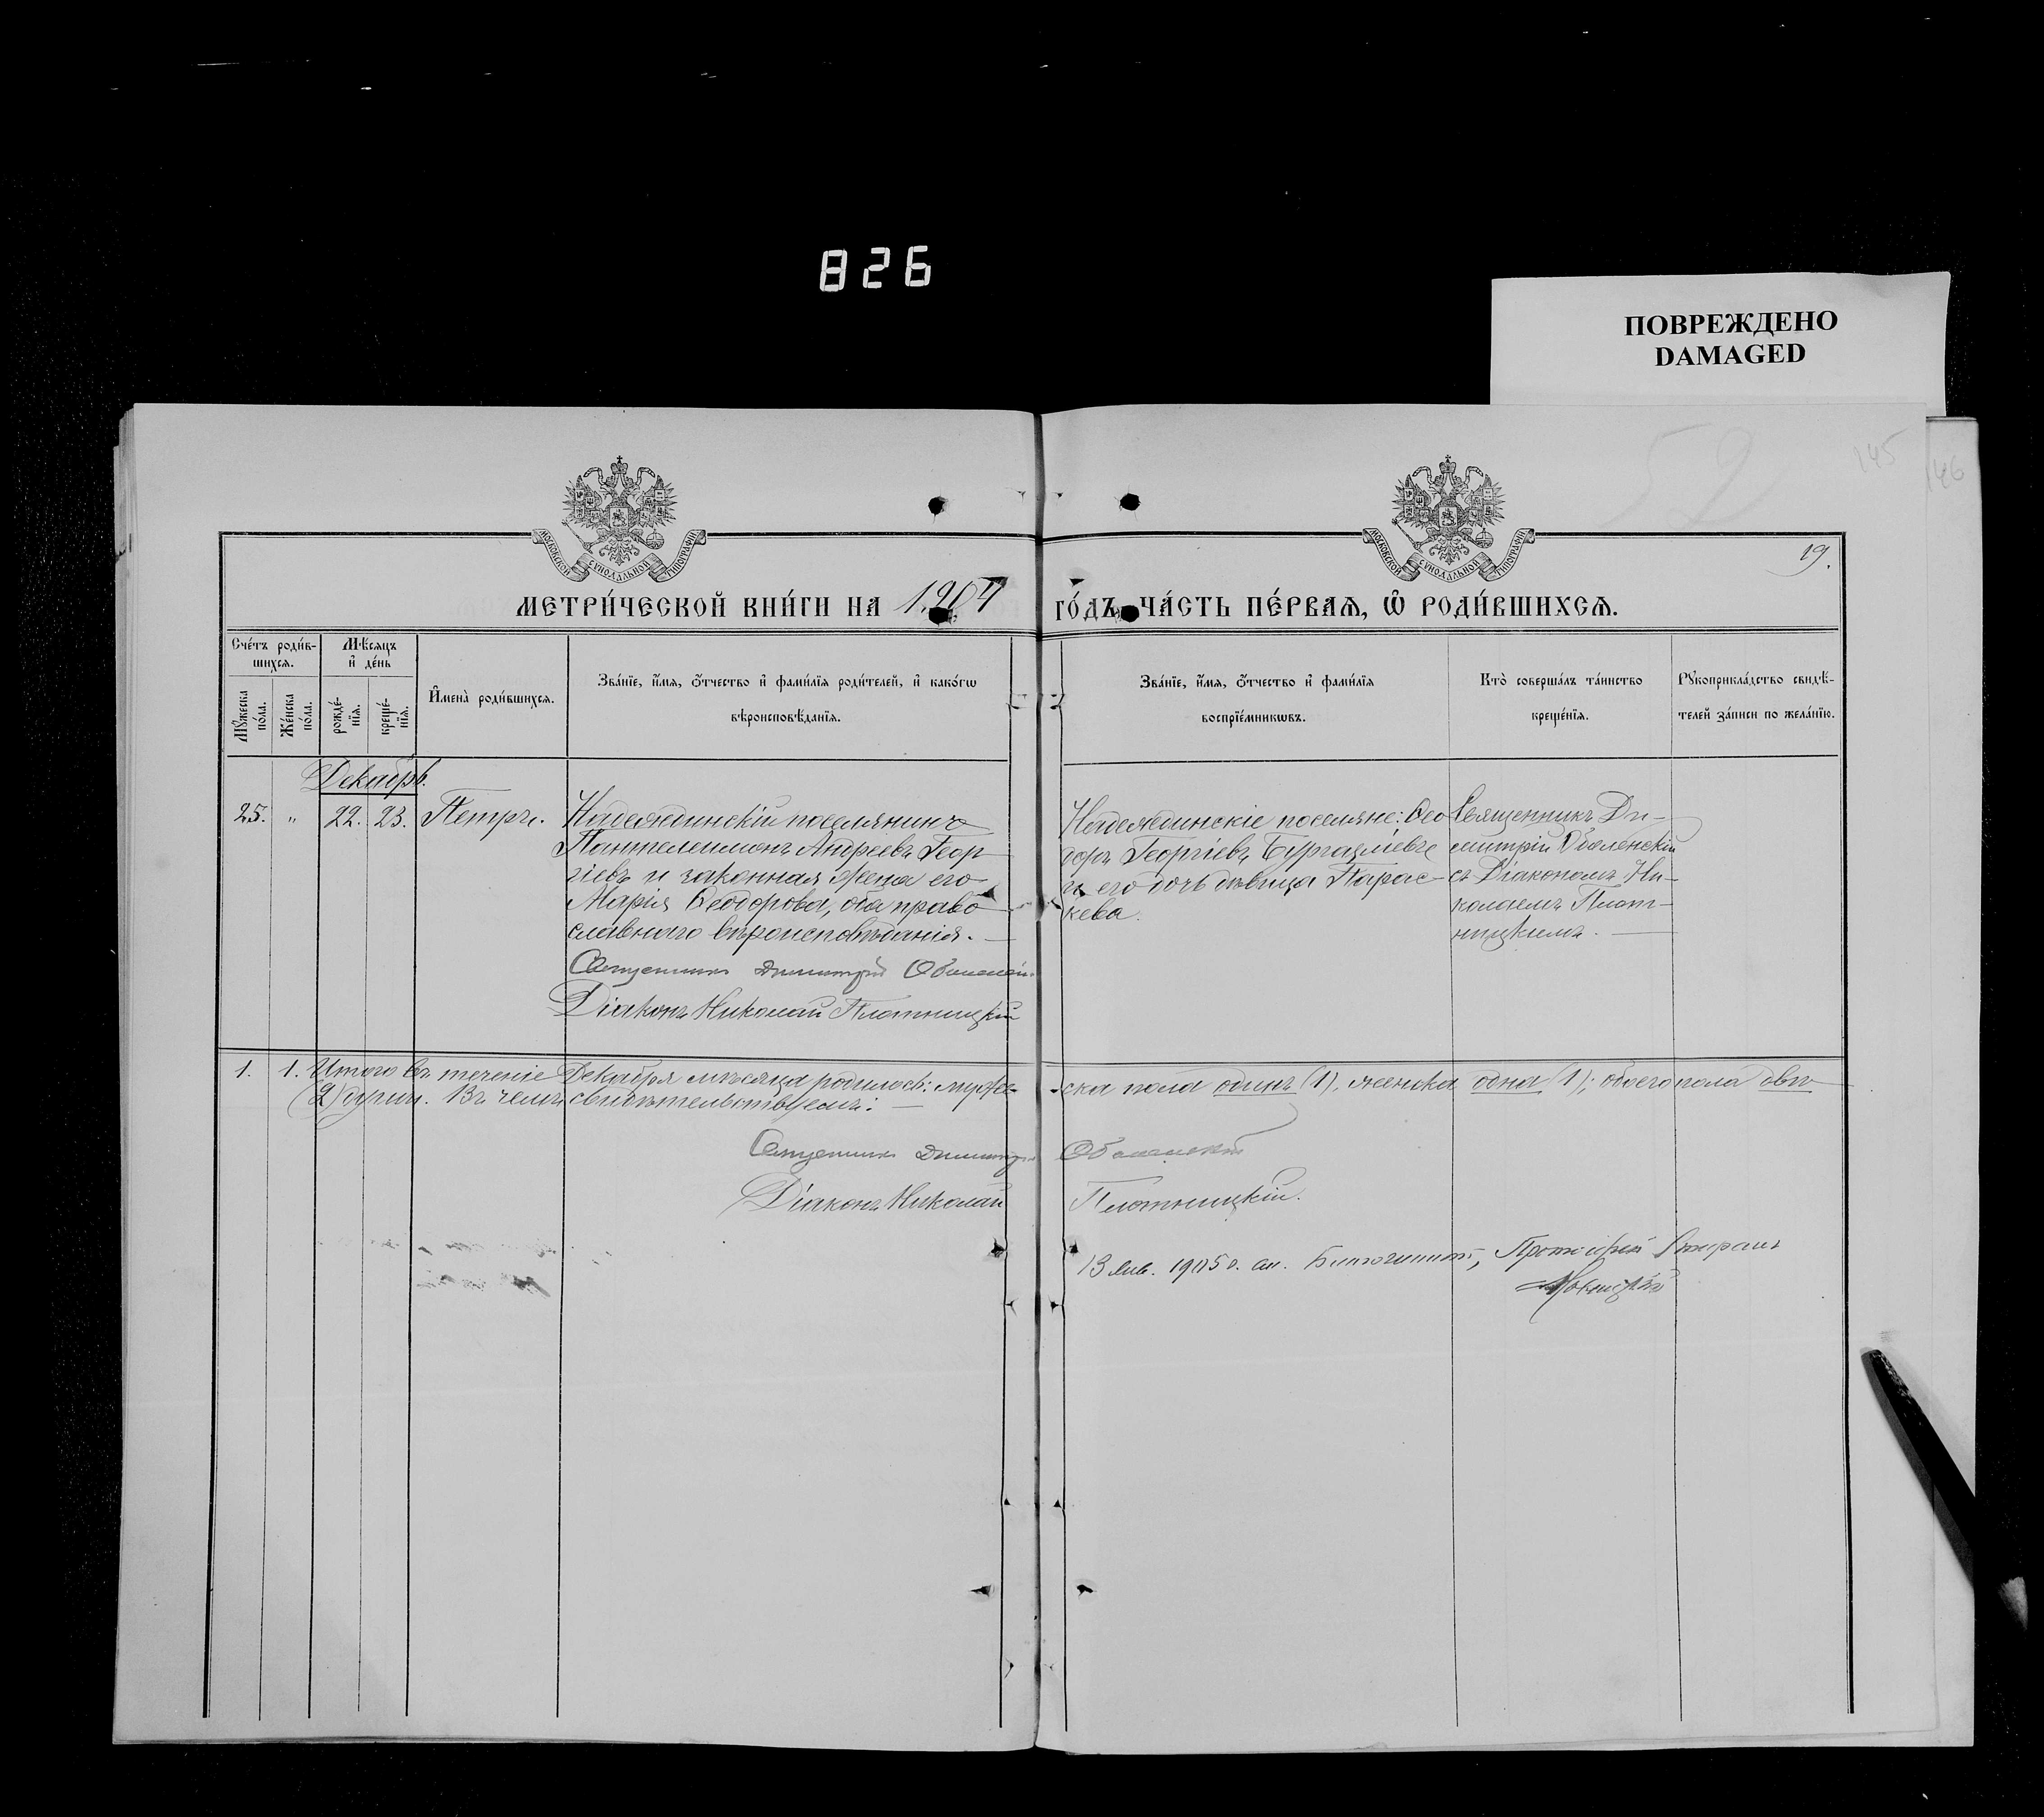 826
ПОВРЕЖДЕНО
DAMAGED
52
145
146
МОСКОВСКОЙ СѴНОДАЛЬНОЙ ТИПОГРАФІИ
МОСКОВСКОЙ СѴНОДАЛЬНОЙ ТИПОГРАФІИ
19.
МЕТРИ́ЧЕСКОЙ КНИ́ГИ НА 1904
ГО́ДЪ, ЧА́СТЬ ПЕ́РВАЯ, Ѡ РОДИ́ВШИХСЯ.
Сче́тъ роди́в-
шихся.
Мꙋ́жеска по́ла.
Же́нска по́ла.
Мѣ́сяцъ
и҆ де́нь
рожде́-
нїѧ.
креще́-
нїѧ.
И҆мена̀ роди́вшихся.
Зва́нїе, и҆́мя, ѻ҆́тчество и҆ фами́лїя роди́телей, и҆ како́гѡ
вѣроисповѣ́данїя.
Зва́нїе, и҆́мя, ѻ҆́тчество и҆ фами́лїя
воспрїе́мникѡвъ.
Кто̀ соверша́лъ та́инство
креще́нїя.
Рꙋкоприкла́дство свидѣ́-
телей за́писи по жела́нїю.
Декабрь.
25. „ 22. 23. Петръ.
Надеждинскій поселянинъ
Пантелеимонъ Андреевъ Геор-
гіевъ и законная жена его
Марія Ѳеодорова, оба право-
славнаго вѣроисповѣданія.
Священникъ Димитрій Оболенскій
Діаконъ Николай Плотницкій
Надеждинскіе поселяне: Ѳео-
доръ Георгіевъ Бургазліевъ
и его дочь дѣвица Парас-
кева.
Священникъ Ди-
митрій Оболенскій
съ Діакономъ Ни-
колаемъ Плот-
ницкимъ.
1. 1. Итого въ теченіе Декабря мѣсяца родилось: муже-
ска пола одинъ (1), женска одна (1); обоего пола двѣ
(2) души. Въ чемъ свидѣтельствуемъ:
Священникъ Димитрій Оболенскій
Діаконъ Николай Плотницкій.
13 Янв. 1905 г. Благочинный, Протоіерей